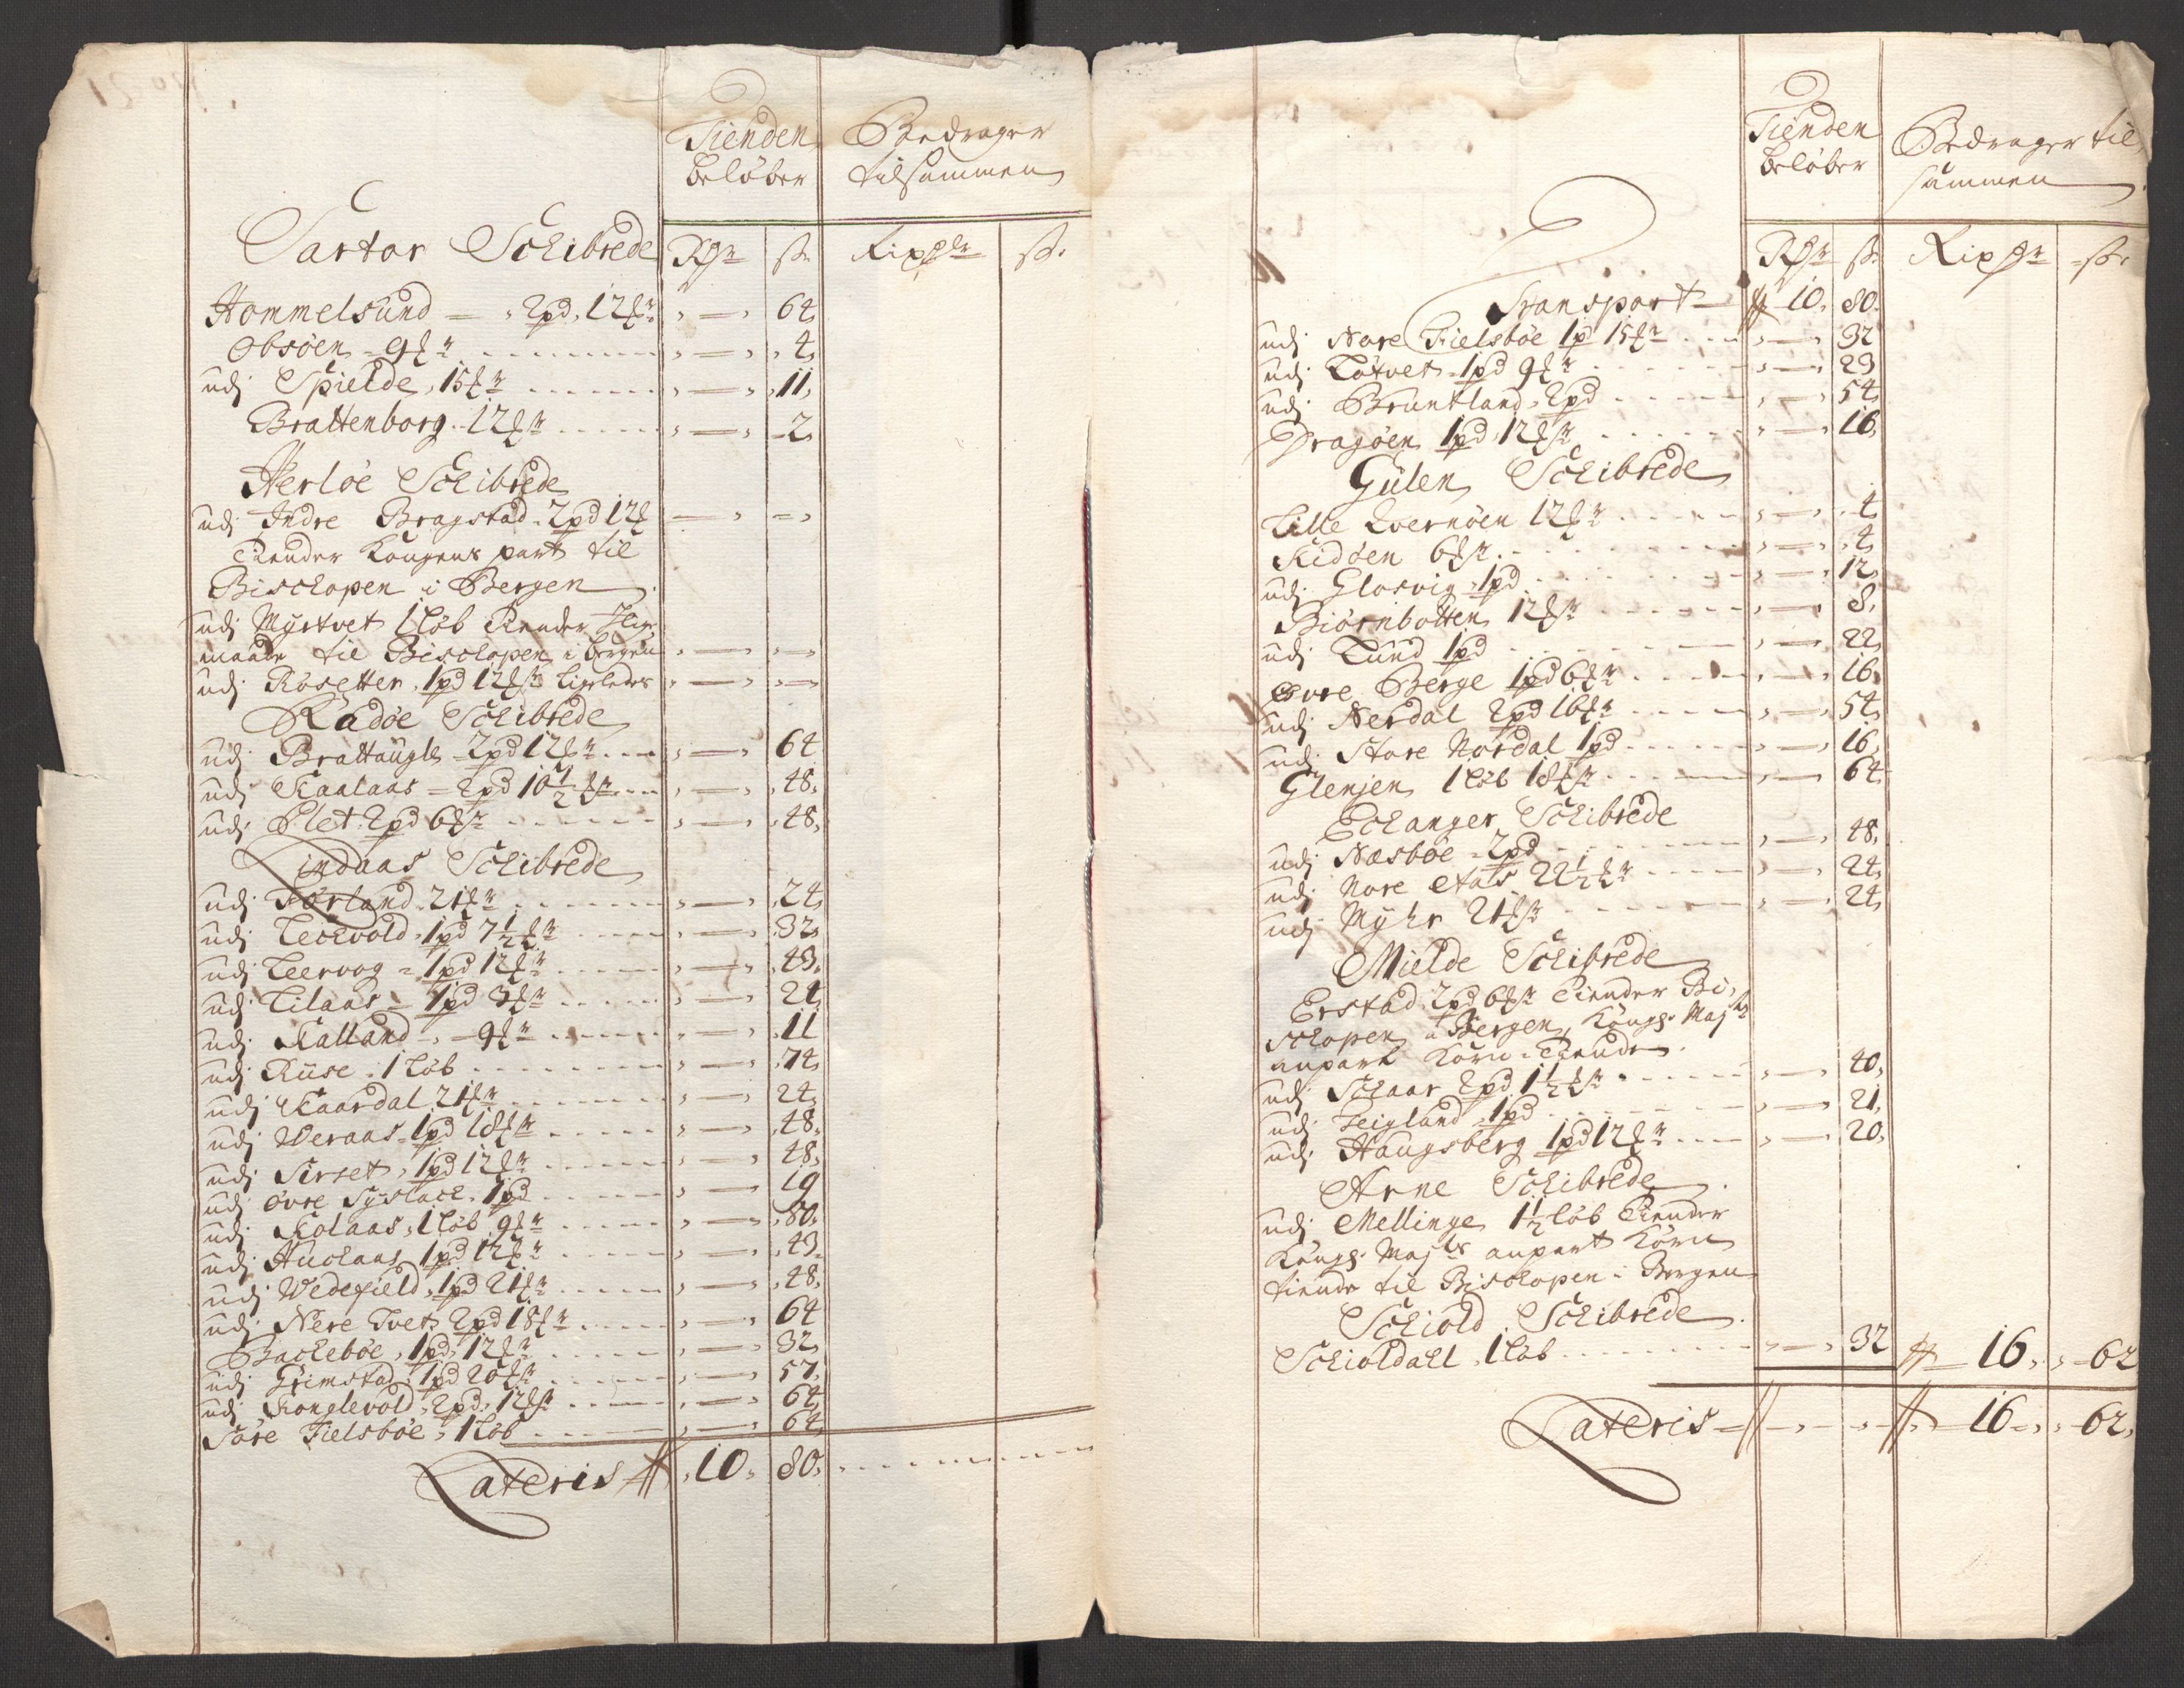 Tienden Bedrager
beløber tilsammen
Sartor Schibrede Rdr ß. Rixdr ß.
Hommelsund - 2pd, 12 64
Obsøen - 9 4
udj Spielde, 15 11
Brattenborg - 12 2
Herløe Schibrede
udj Indre Bragstad - 2pd 12
Tiender Kongens part til
Bischopen i Bergen
udj Myrtvet 1 løb Tiender
maade til Bischopen i Bergen
udj Røsetter, 1pd 12 ligeledes
Radøe Schibrede
udj Brattaugle - 2pd 12 64
udj Skaalaas - 2pd 10½ 48
udj Plet. 2pd 6 48
Lindaas Schibrede
udj Førland - 21 24
udj Leckvold - 1pd 7½ 32
udj Leervog - 1pd 12 43
udj Lilaas - 1pd 3 24
udj Kalland - 9 11
udj Riise - 1 løb 74
udj Skaardal 21 24
udj Weraas - 1pd 18 48
udj Sirset, 1pd 12 48
udj Øvre Syslack - 1pd 19
udj Kolaas, 1 løb 9 80
udj Huolaas 1pd 12 43
udj Wedefield, 1pd 21 48
udj Nere Tvet 2pd 18 64
Backebøe, 1pd, 12 32
udj Grimstad 1pd 20 57
udj Konglevold, 2pd, 12 64
Søre Fielsbøe, 1 løb 64
Lateris 10 80
Tienden Bedrager til
beløber sammen
Rdr ß. Rixdr ß.
Transport 10 80
udj Nore Fielsbøe 1p 15 32
udj Løtvet - 1pd 9 23
udj Bruntland - 2pd 54
Dragøen 1pd, 12 16
Gulen Schibrede
Lille Qvernøen 12 4
Kidøen 6 4
udj Glosvig, 1pd 12
Biørnbotten 12 8
udj Lund 1pd 22
Øvre Berge 1pd 6 16
udj Nerdal 2pd 16 54
udj Store Nordal 1pd 16
Glenjen 1 løb 18 64
Echanger Schibrede
udj Næsbøe - 2pd 48
udj Nore Aas 22½ 24
udj Myhr 21 24
Mielde Schibrede
Erstad, 2pd 6 Tiender Bi-
schopen i Bergen, Kongs Majts
anpart Korn-Tiende
udj Schaar 2pd 1½ 40
udj Teigland, 1pd 21
udj Haugsberg 1pd 12 20
Arne Schibrede
udj Mellinge 1½ løb Tiender
Kongs Majts anpart Korn
tiende til Bischopen i Bergen
Schiold Schibrede
Schioldahl, 1 løb 32 16 62
Lateris 16 62